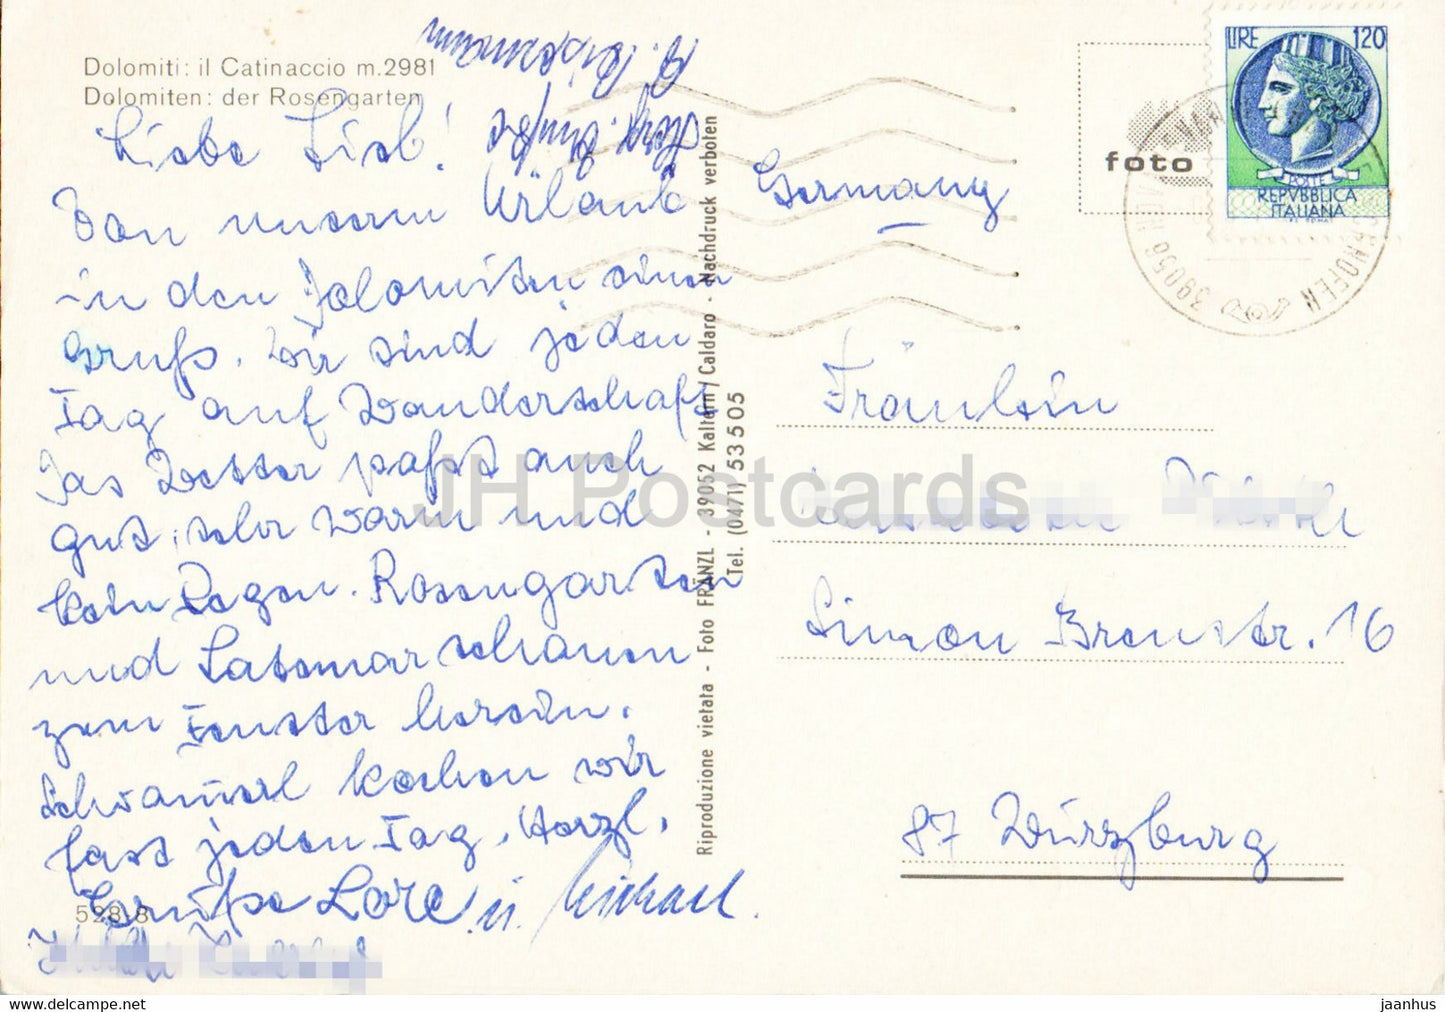 Dolomiti: il Catinaccio m.2981
Dolomiten: der Rosengarten
Liebe Lisl!
Von unserm Urlaub
in den Dolomiten einen
Gruß. Wir sind jeden
Tag auf Wanderschaft
Das Wetter paßt auch
gut, sehr warm und
kein Regen. Rosengarten
und Latemar schauen
zum Fenster herein.
Schwamerl kochen wir
fast jeden Tag. Herzl.
Grüße Lore u. Michael.
528/8
Herzl. Grüße
Riproduzione vietata - Foto FRÄNZL - 39052 Kaltern / Caldaro - Nachdruck verboten
Tel. (0471) 53505
Germany
foto
LIRE 120
POSTE
REPVBBLICA
ITALIANA
39056
Fräulein
Simon Breustr. 16
87 Würzburg
JH Postcards
www.delcampe.net
jaanhus